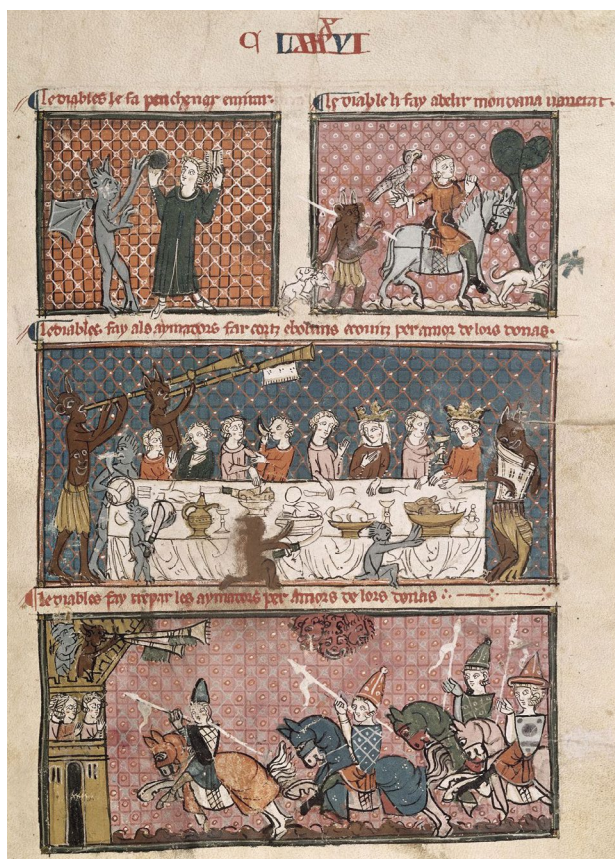 le diables le fa penchenar emirar.
le diable li fay abelir mondana uanetat.
le diables fay als aymadors far cortz e bobans e conuitz per amor de lors donas.
le diables fay trepar les aymadors per amors de lors donas